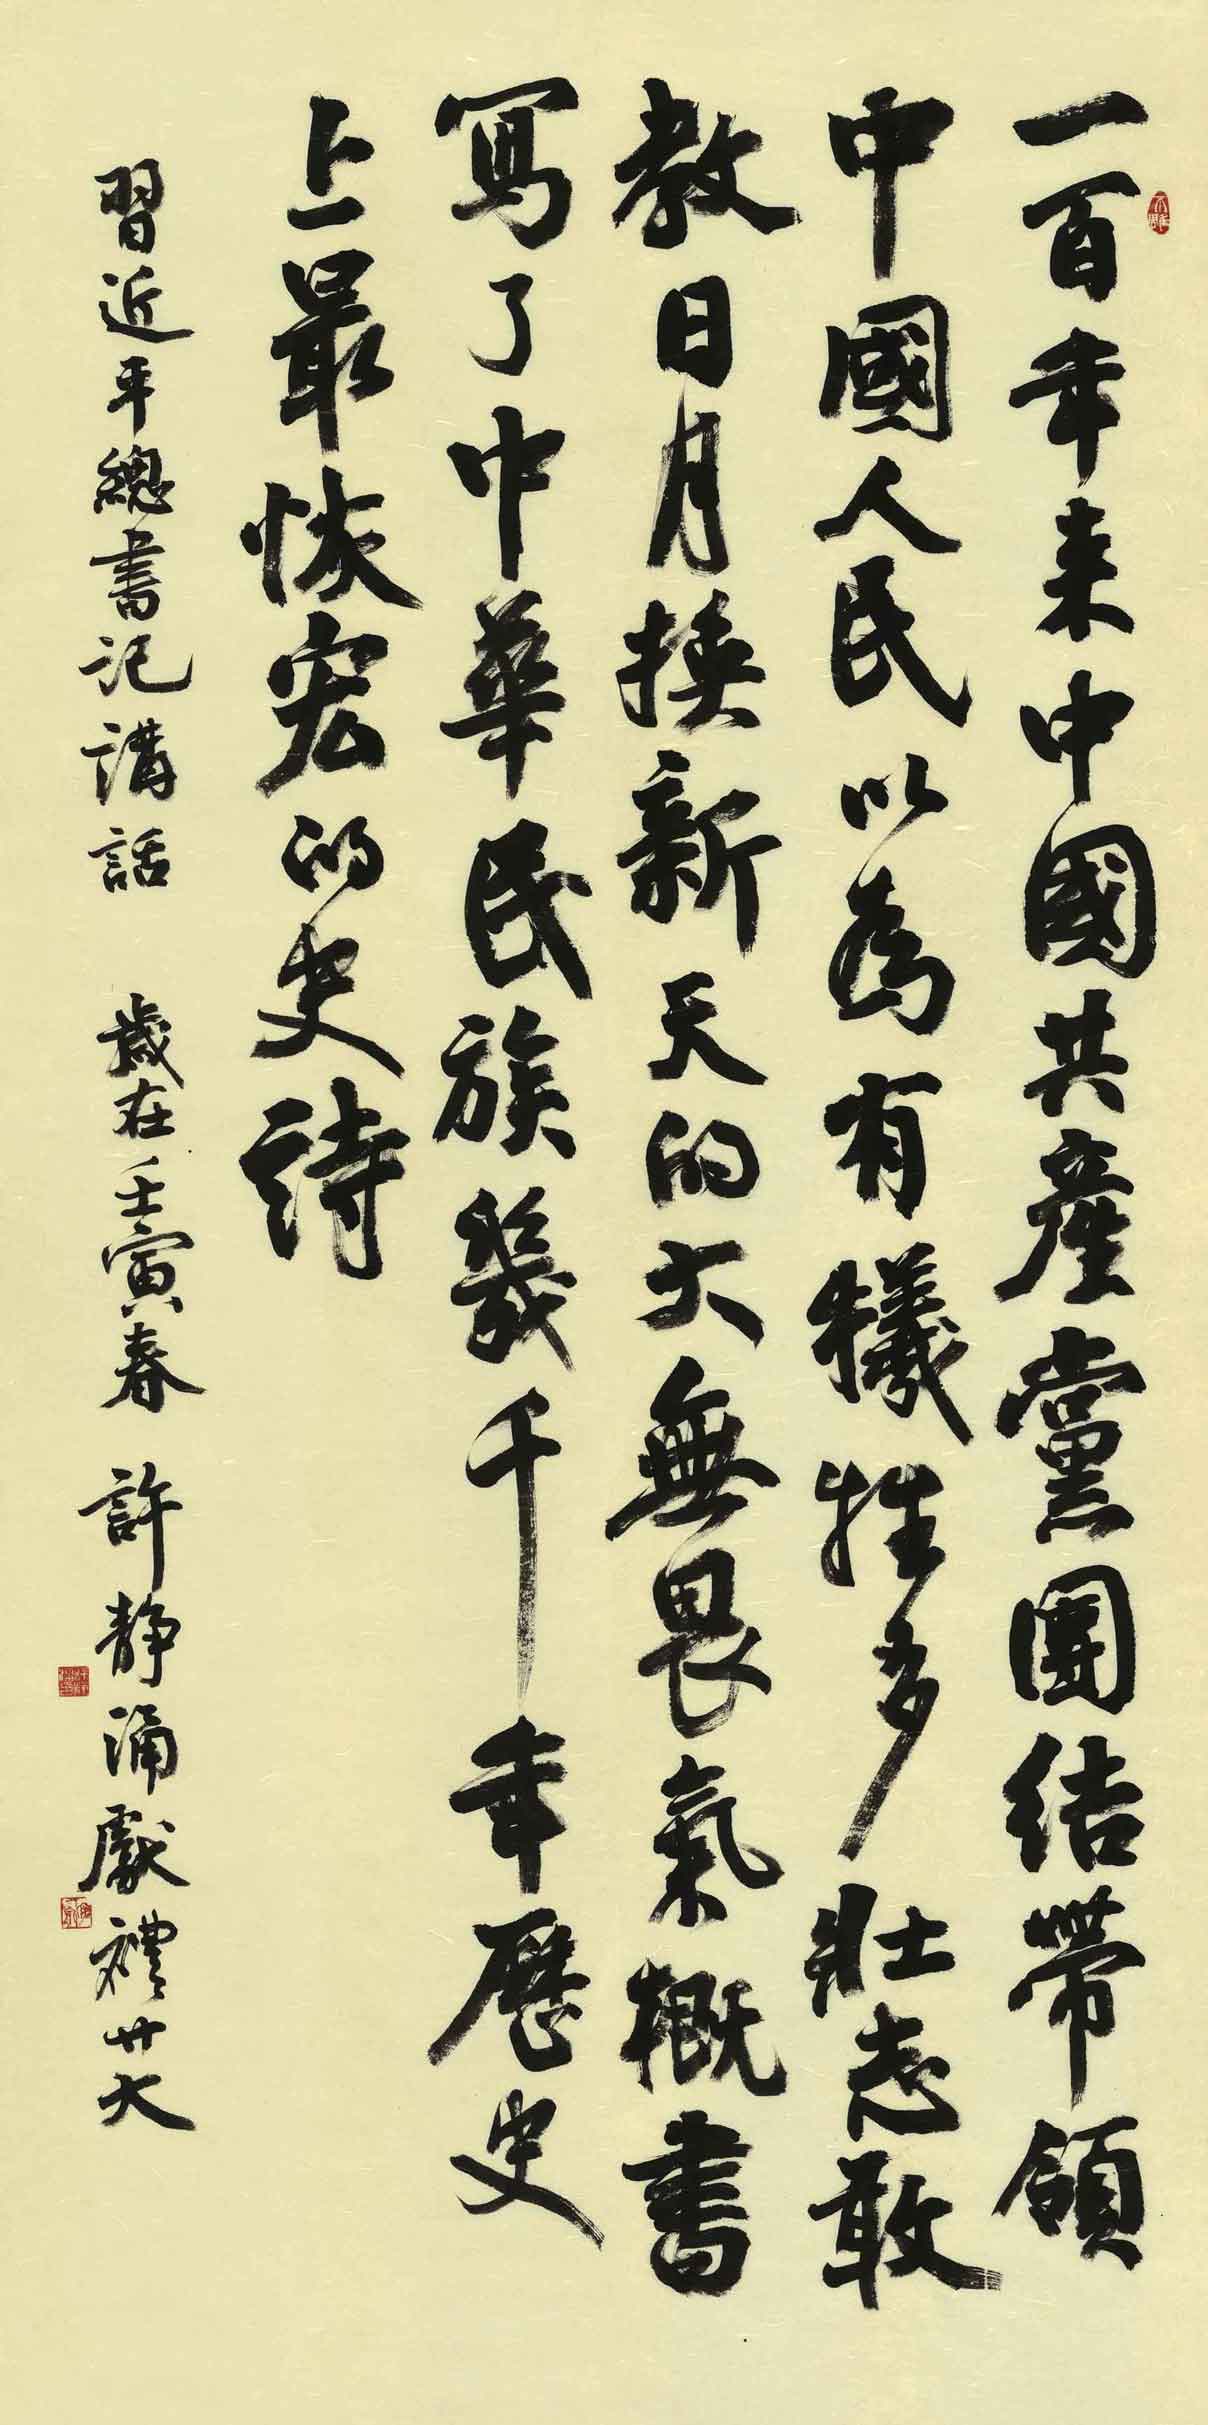 一百年来中國共產黨團结帶領
中國人民以為有犧牲多壯志敢
教日月換新天的大無畏氣概書
寫了中華民族幾千年歷史
上最恢宏的史詩
習近平總書记講話 歲在壬寅春 許静涌獻禮廿大